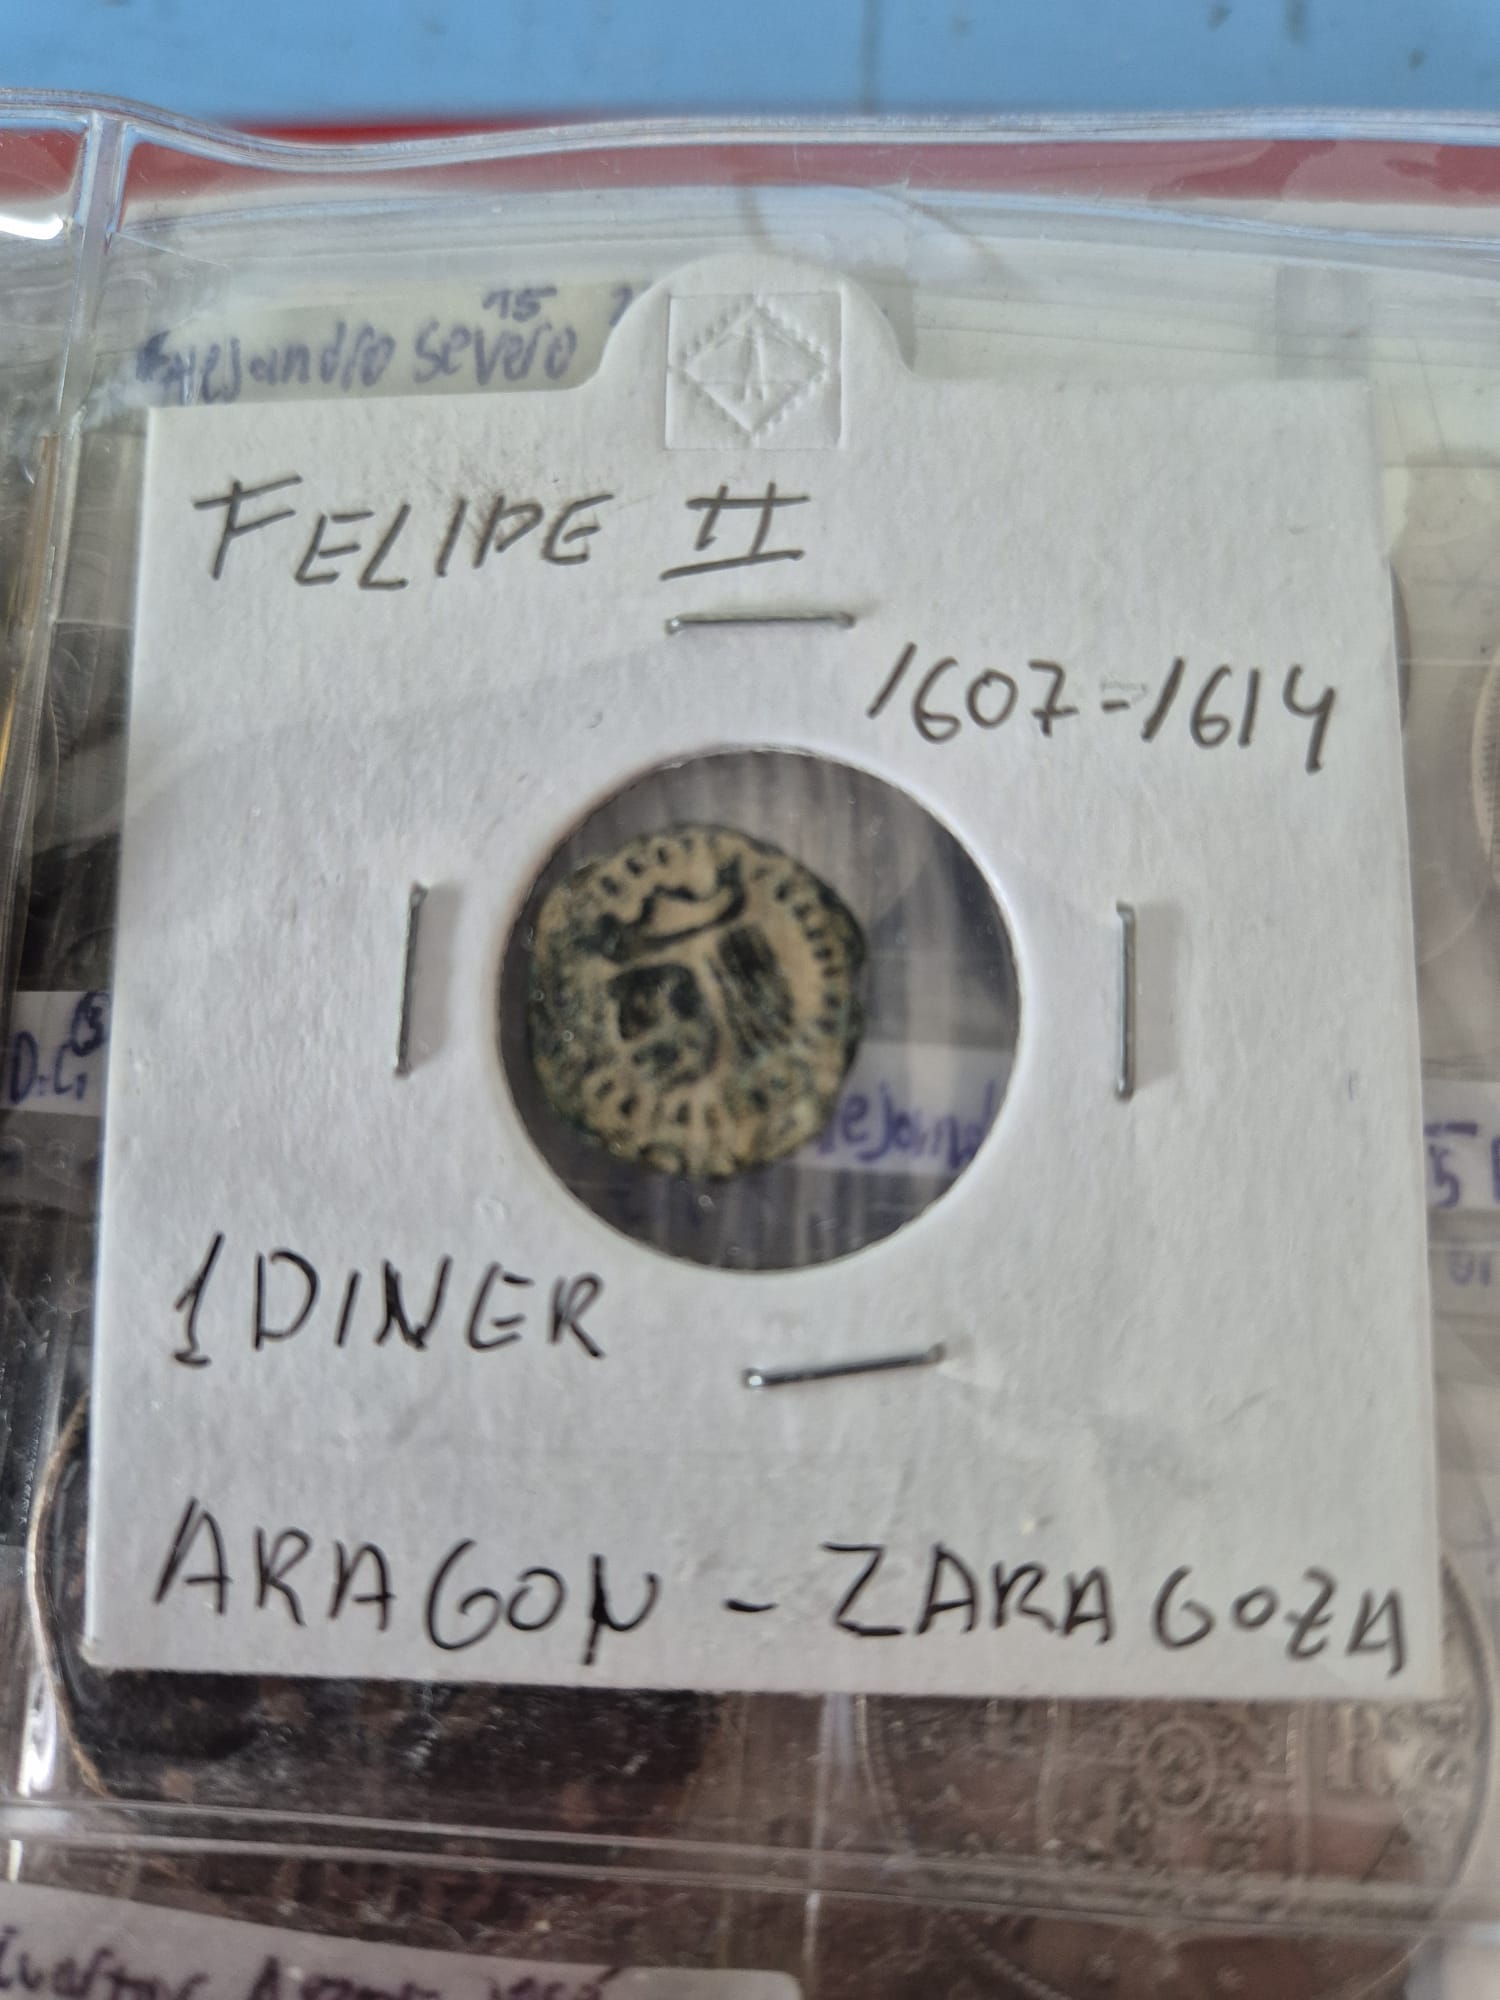 15
Alejandro Severo
FELIPE II
1607-1614
1 DINER
ARAGON - ZARAGOZA
D.C.